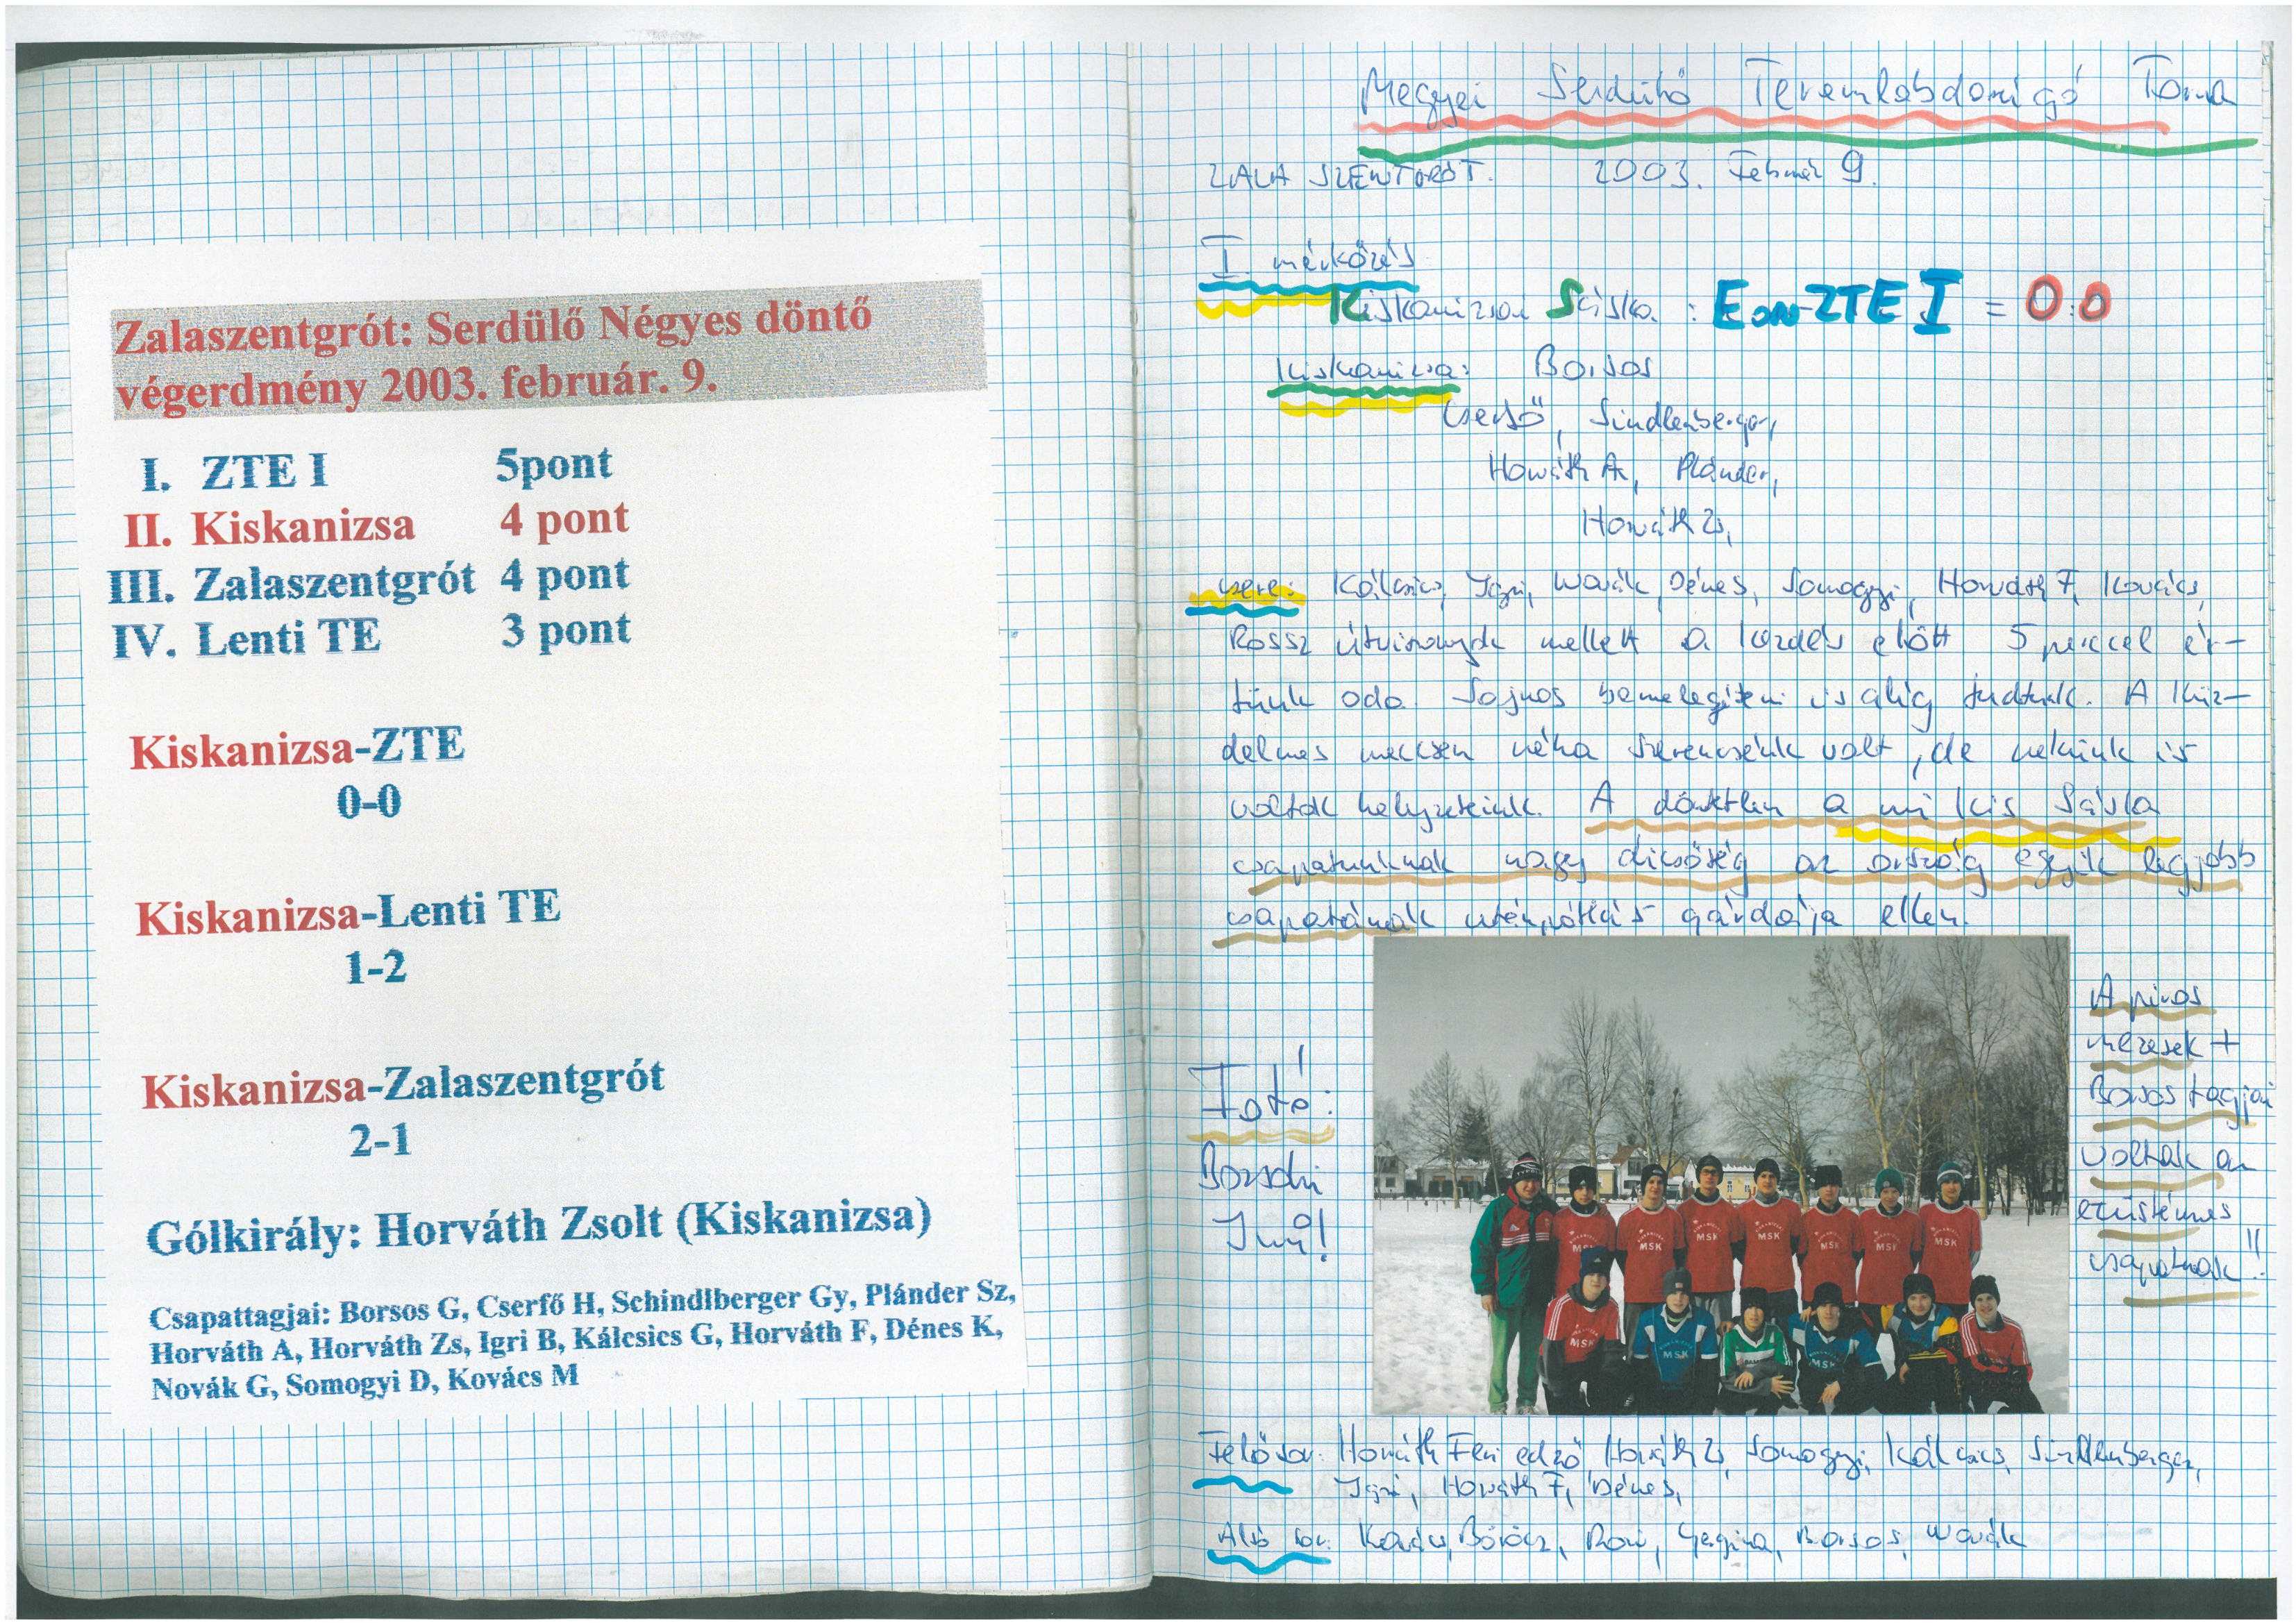 Zalaszentgrót: Serdülő Négyes döntő
végerdmény 2003. február. 9.
I. ZTE I 5pont
II. Kiskanizsa 4 pont
III. Zalaszentgrót 4 pont
IV. Lenti TE 3 pont
Kiskanizsa-ZTE
0-0
Kiskanizsa-Lenti TE
1-2
Kiskanizsa-Zalaszentgrót
2-1
Gólkirály: Horváth Zsolt (Kiskanizsa)
Csapattagjai: Borsos G, Cserfő H, Schindlberger Gy, Plánder Sz,
Horváth A, Horváth Zs, Igri B, Kálcsics G, Horváth F, Dénes K,
Novák G, Somogyi D, Kovács M
Megyei Serdülő Teremlabdarúgó Torna
ZALASZENTGRÓT. 2003. Február 9.
I. mérkőzés
Kiskanizsai Sáska : ZTE I = 0:0
Kiskanizsa: Borsos
Cserfő, Sindlenberger,
Horváth A, Plánder,
Horváth Zs,
csere: Kálcsics, Igri, Novák, Dénes, Somogyi, Horváth F, Kovács,
Rossz útviszonyok mellett a kezdés előtt 5 perccel ér-
tünk oda. Sajnos bemelegíteni is alig tudtunk. A küz-
delmes meccsen néha szerencsénk volt, de nekünk is
voltak helyzeteink. A döntetlen a mi kis Sáska
csapatunknak nagy dicsőség az ország egyik legjobb
csapatának utánpótlás gárdája ellen.
Fotó:
A piros
mezesek +
Borsos tagjai
voltak az
ezüstérmes
csapatnak!!
MSK
MSK
MSK
MSK
MSK
MSK
MSK
Felső sor: Horváth Feri edző, Horváth Zs, Somogyi, Kálcsics, Sindlenberger,
Igri, Horváth F, Dénes,
Alsó sor: Kovács, Böröcz, Gergina, Borsos, Novák